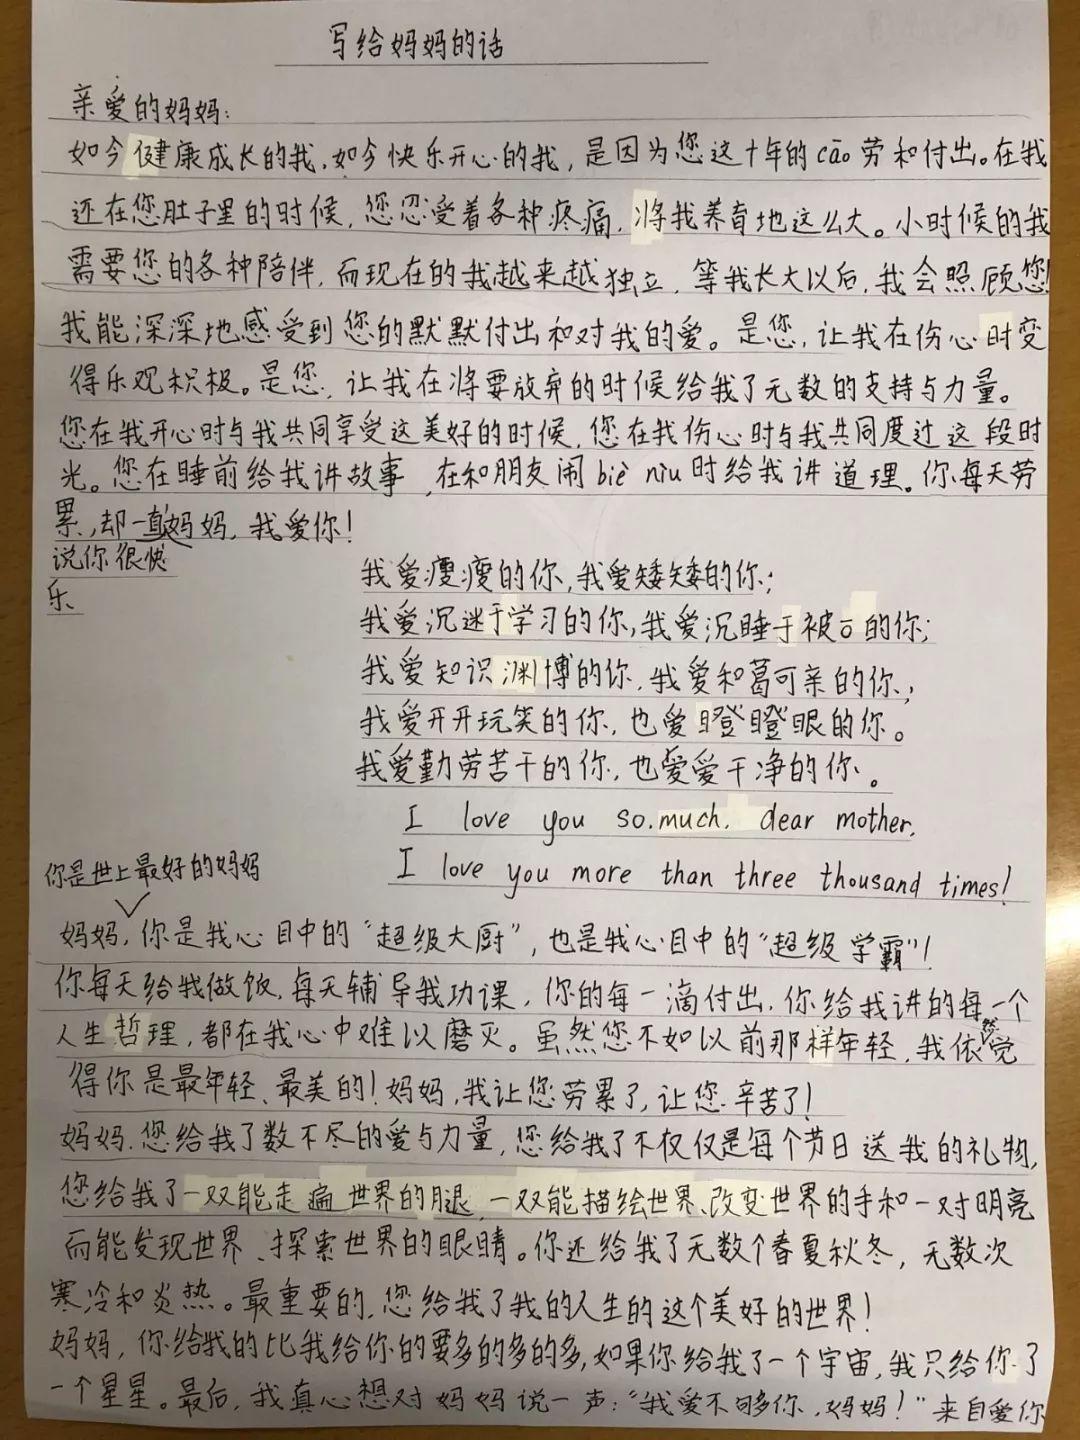 写给妈妈的话
亲爱的妈妈:
如今健康成长的我,如今快乐开心的我,是因为您这十年的cāo劳和付出。在我
还在您肚子里的时候,您忍受着各种疼痛,将我养育地这么大。小时候的我
需要您的各种陪伴,而现在的我越来越独立,等我长大以后,我会照顾您!
我能深深地感受到您的默默付出和对我的爱。是您,让我在伤心时变
得乐观积极。是您,让我在将要放弃的时候给我了无数的支持与力量。
您在我开心时与我共同享受这美好的时候,您在我伤心时与我共同度过这段时
光。您在睡前给我讲故事,在和朋友闹biè niu时给我讲道理。你每天劳
累,却一直妈妈,我爱你!
说你很快
乐、
我爱瘦瘦的你,我爱矮矮的你;
我爱沉迷于学习的你,我爱沉睡于被o的你;
我爱知识渊博的你,我爱和葛可亲的你;
我爱开开玩笑的你,也爱瞪瞪眼的你。
我爱勤劳苦干的你,也爱爱干净的你。
I love you so.much. dear mother.
I love you more than three thousand times!
你是世上最好的妈妈
妈妈,你是我心目中的“超级大厨”,也是我心目中的“超级学霸”!
你每天给我做饭,每天辅导我功课,你的每一滴付出,你给我讲的每一个
人生哲理,都在我心中难以磨灭。虽然您不如以前那样年轻,我依然觉
得你是最年轻、最美的!妈妈,我让您劳累了,让您辛苦了!
妈妈.您给我了数不尽的爱与力量,您给我了不仅仅是每个节日送我的礼物,
您给我了一双能走遍世界的腿,一双能描绘世界、改变世界的手和一对明亮
而能发现世界、探索世界的眼睛。你还给我了无数个春夏秋冬,无数次
寒冷和炎热。最重要的,您给我了我的人生的这个美好的世界!
妈妈,你给我的比我给你的要多的多的多,如果你给我了一个宇宙,我只给你了
一个星星。最后,我真心想对妈妈说一声:“我爱不够你,妈妈!”来自爱你